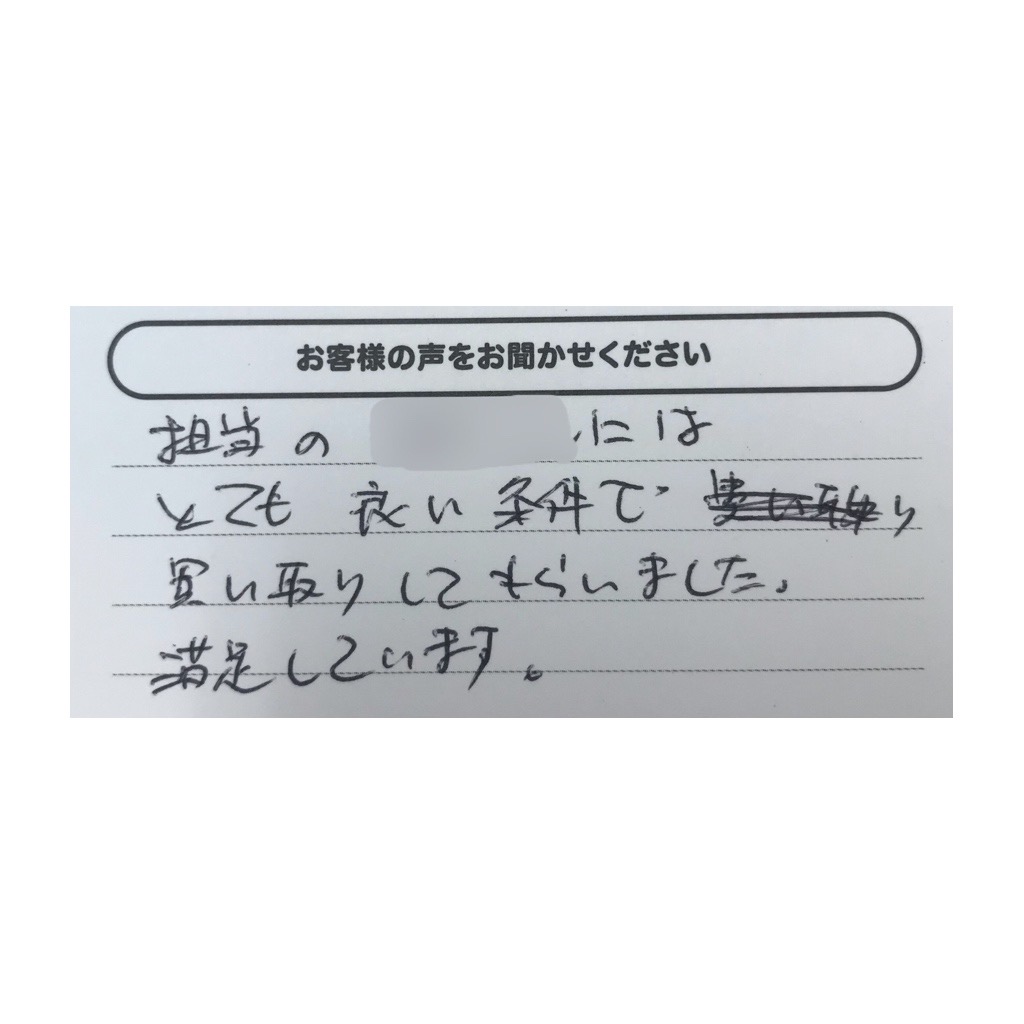 お客様の声をお聞かせください
担当の には
とても良い条件で り
買い取りしてもらいました。
満足しています。